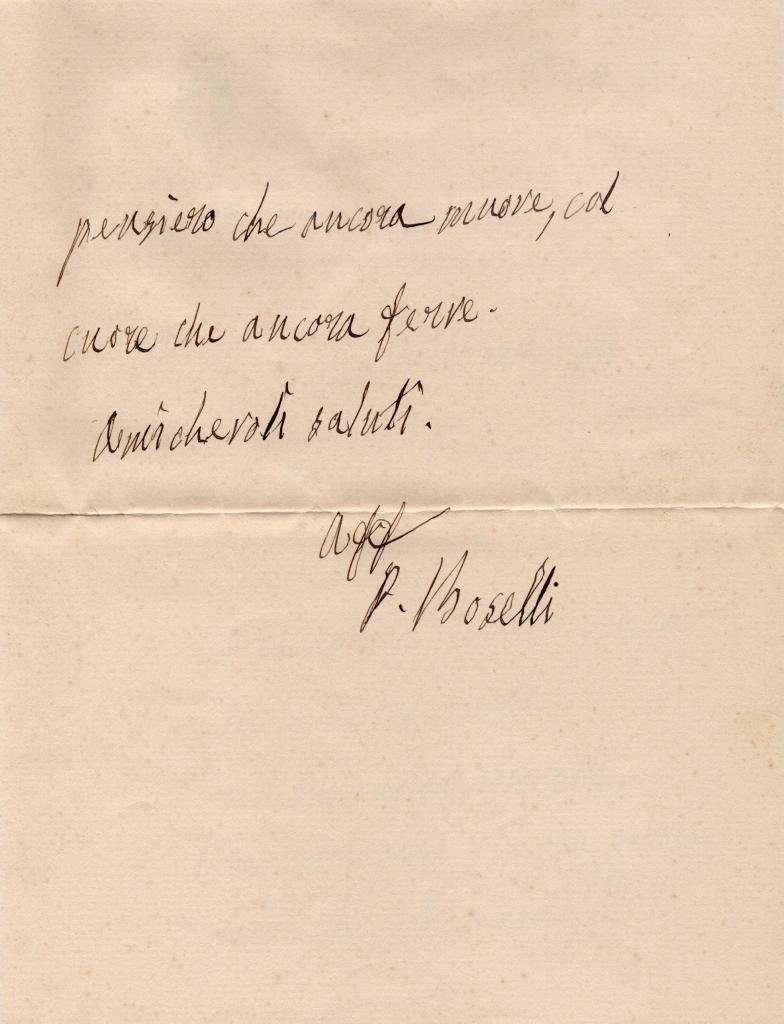 pensiero che ancora muove, col
cuore che ancora ferve.
Amichevoli saluti.
aff
P. Boselli